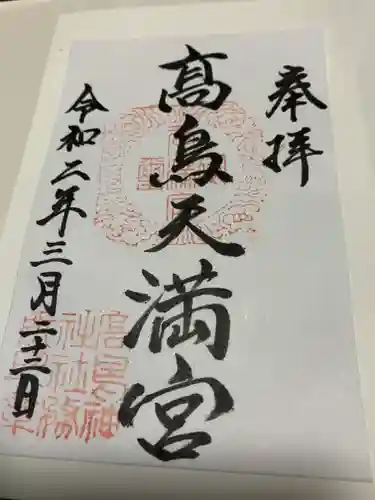 奉拝
髙鳥天満宮
令和二年三月二十二日